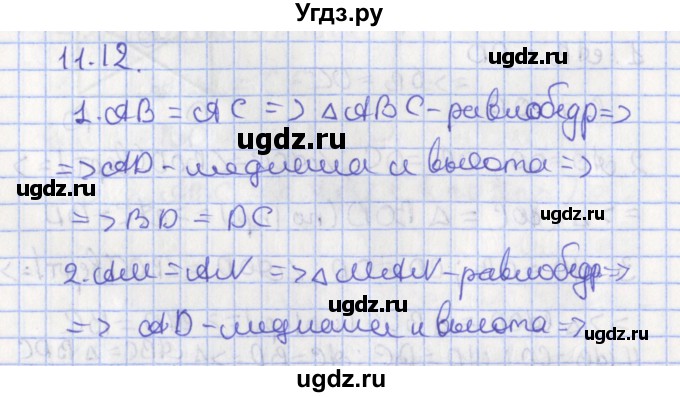 Угдз.ру
11.12.
1. AB = AC => △ABC - равнобедр =>
=> AD - медиана и высота =>
=> BD = DC
2. AM = AN => △MAN - равнобедр =>
=> AD - медиана и высота =>
ugdz.ru
ugdz.ru
ugdz.ru
ugdz.ru
ugdz.ru
ugdz.ru
ugdz.ru
ugdz.ru
ugdz.ru
ugdz.ru